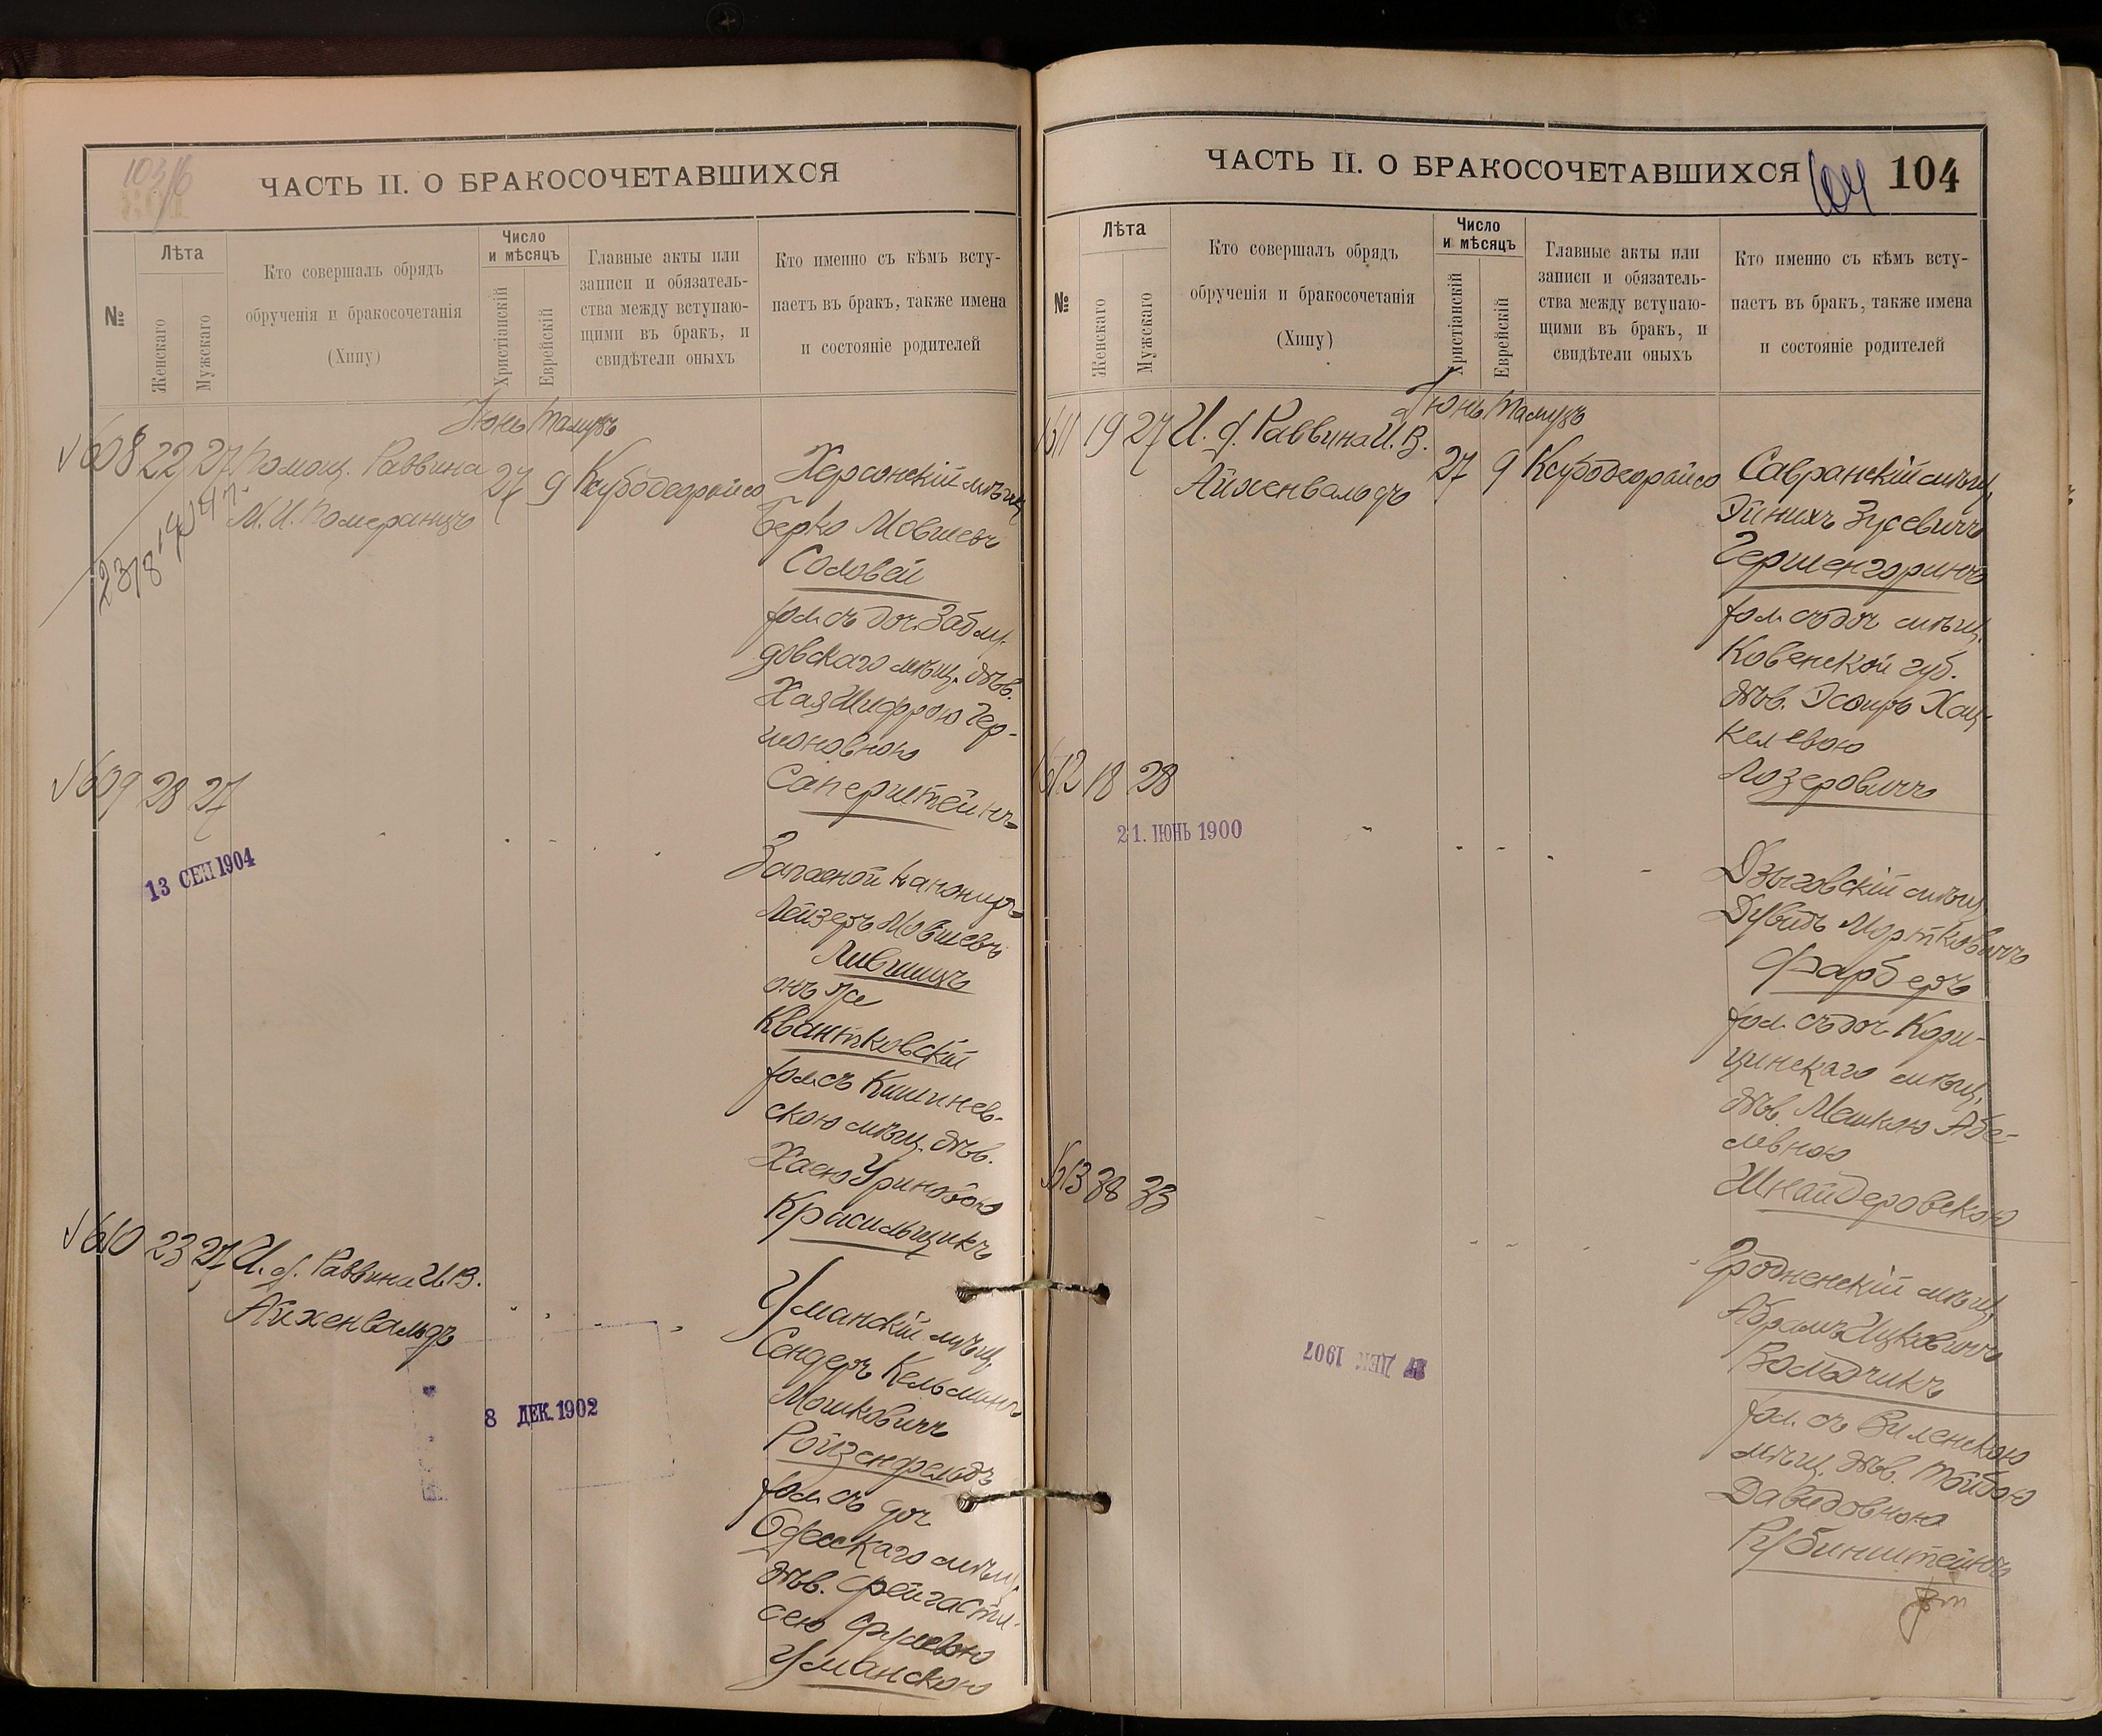 103/б
ЧАСТЬ II. О БРАКОСОЧЕТАВШИХСЯ
№
Лѣта
Женскаго
Мужскаго
Кто совершалъ обрядъ
обрученія и бракосочетанія
(Хипу)
Число
и мѣсяцъ
Христіанскій
Еврейскій
Главные акты или
записи и обязатель-
ства между вступаю-
щими въ бракъ, и
свидѣтели оныхъ
Кто именно съ кѣмъ всту-
паетъ въ бракъ, также имена
и состояніе родителей
Іюнь Тамузъ
608 22 27 Помощ. Раввина
М. И. Померанцъ
27 9
Херсонскій мѣщ
Берко Мовшевъ
Соловей
съ доч. Заблу-
довскаго мѣщ. дѣв.
Хая Шифрою Гер-
шоновною
Саперштейнъ
609 28 27
13 СЕН 1904
Запасной канониръ
Лейзеръ Мовшевъ
Лившицъ
онъ же
Квантковскій
съ Кишинев-
скою мѣщ. дѣв.
Хаею Уриновою
Красильщикъ
610 23 27 И. д. Раввина И. В.
Айхенвальдъ
8 ДЕК. 1902
Уманскій мѣщ
Сендеръ Кельманъ
Мошковичъ
Ройзенфельдъ
съ доч
Одесскаго мѣщ.
дѣв.
Уманскою
ЧАСТЬ II. О БРАКОСОЧЕТАВШИХСЯ
104
104
№
Лѣта
Женскаго
Мужскаго
Кто совершалъ обрядъ
обрученія и бракосочетанія
(Хипу)
Число
и мѣсяцъ
Христіанскій
Еврейскій
Главные акты или
записи и обязатель-
ства между вступаю-
щими въ бракъ, и
свидѣтели оныхъ
Кто именно съ кѣмъ всту-
паетъ въ бракъ, также имена
и состояніе родителей
Іюнь Тамузъ
611 19 27 И. д. Раввина И. В.
Айхенвальдъ
27 9
Савранскій мѣщ.
Эйнихъ Зусевичъ
Гершенгоринъ
съ доч мѣщ.
Ковенской губ.
дѣв. Эсѳирь Хац-
келевою
Лозеровичъ
612 18 28
21. ІЮНЬ 1900
Дзыговскій мѣщ
Дувидъ Мортковичъ
Фарберъ
съ доч. Кори-
цинскаго мѣщ.
дѣв. Мешкою Абе-
левною
Шнайдеровскою
613 38 33
ДЕК 1907
Гродненскій мѣщ.
Абрамъ Ицковичъ
Вольдчикъ
съ Виленскою
мѣщ. дѣв. Тойбою
Давидовною
Рубинштейнъ